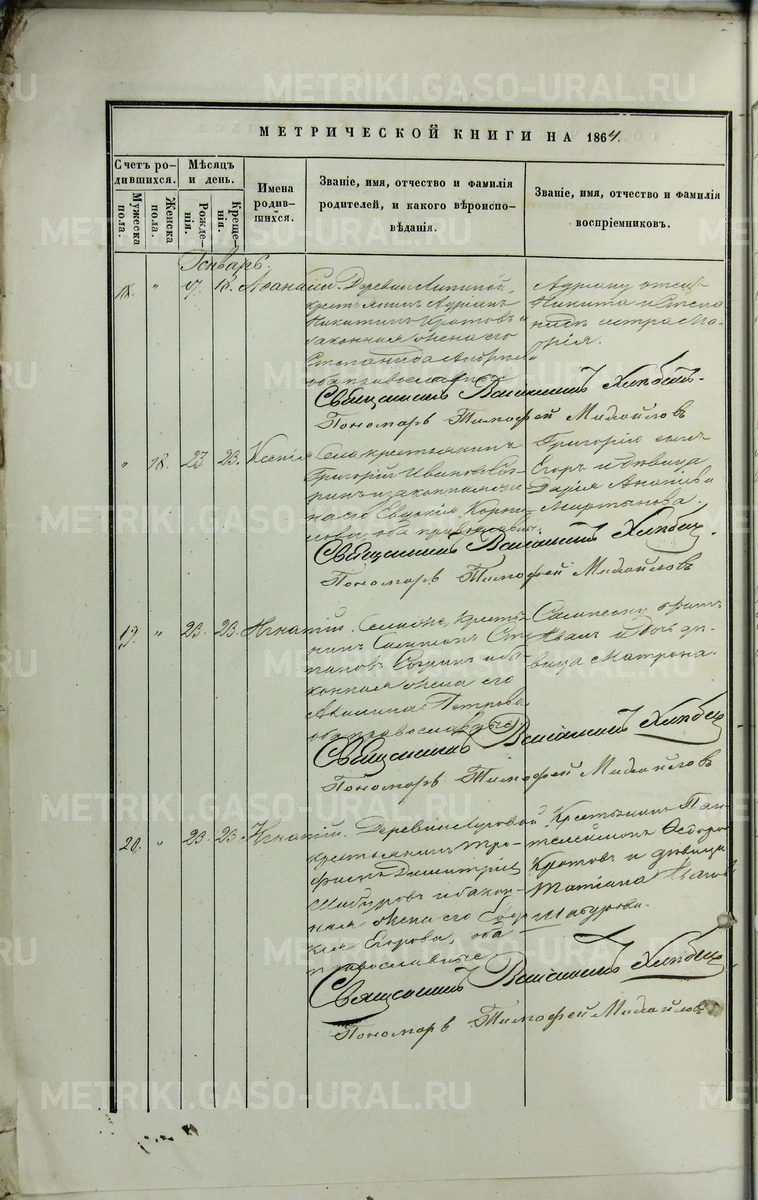 METRIKI.GASO-URAL.RU
МЕТРИЧЕСКОЙ КНИГИ НА 1864.
Счетъ ро-
дившихся.
Мужеска
пола.
Женска
пола.
Мѣсяцъ
и день.
Рожде-
нія.
Креще-
нія.
Имена
родив-
шихся.
Званіе, имя, отчество и фамилія
родителей, и какого вѣроиспо-
вѣданія.
Званіе, имя, отчество и фамилія
воспріемниковъ.
Генварь.
18. " 17. 18. Афанасій. Деревни
крестьянинъ Адріанъ
Никитинъ Кротовъ и
законная жена его
Степанида
оба православные
Адріану отецъ
Никита и Степа-
нидѣ сестра Ма-
рія.
Священникъ Веніаминъ Хлѣбинъ.
Пономарь Тимофей Михайловъ
" 18. 23. 23. Ксенія. Села крестьянинъ
Григорій Ивановъ
и законная же-
на его Евдокія Корни-
лова, оба православн.
Григорію сынъ
Егоръ и дѣвица
Дарія Ананіева
Мартынова.
Священникъ Веніаминъ Хлѣбинъ.
Пономарь Тимофей Михайловъ
19. " 23. 23. Игнатій. Села онъ же, кресть-
нинъ Сампсонъ Сте-
пановъ и за-
конная жена его
Акилина Петрова
оба православные
Сампсону братъ
Иванъ и дочь дѣ-
вица Матрона.
Священникъ Веніаминъ Хлѣбинъ
Пономарь Тимофей Михайловъ
20. " 23. 23. Игнатій. Деревни
крестьянинъ Тро-
фимъ Димитріевъ
Шабуровъ и закон-
ная жена его Евдо-
кія Егорова, оба
православные
Крестьянинъ Пан-
телеймонъ Ѳедоровъ
Кротовъ и дѣвица
Татіана Иванова
Шабурова.
Священникъ Веніаминъ Хлѣбинъ
Пономарь Тимофей Михайловъ